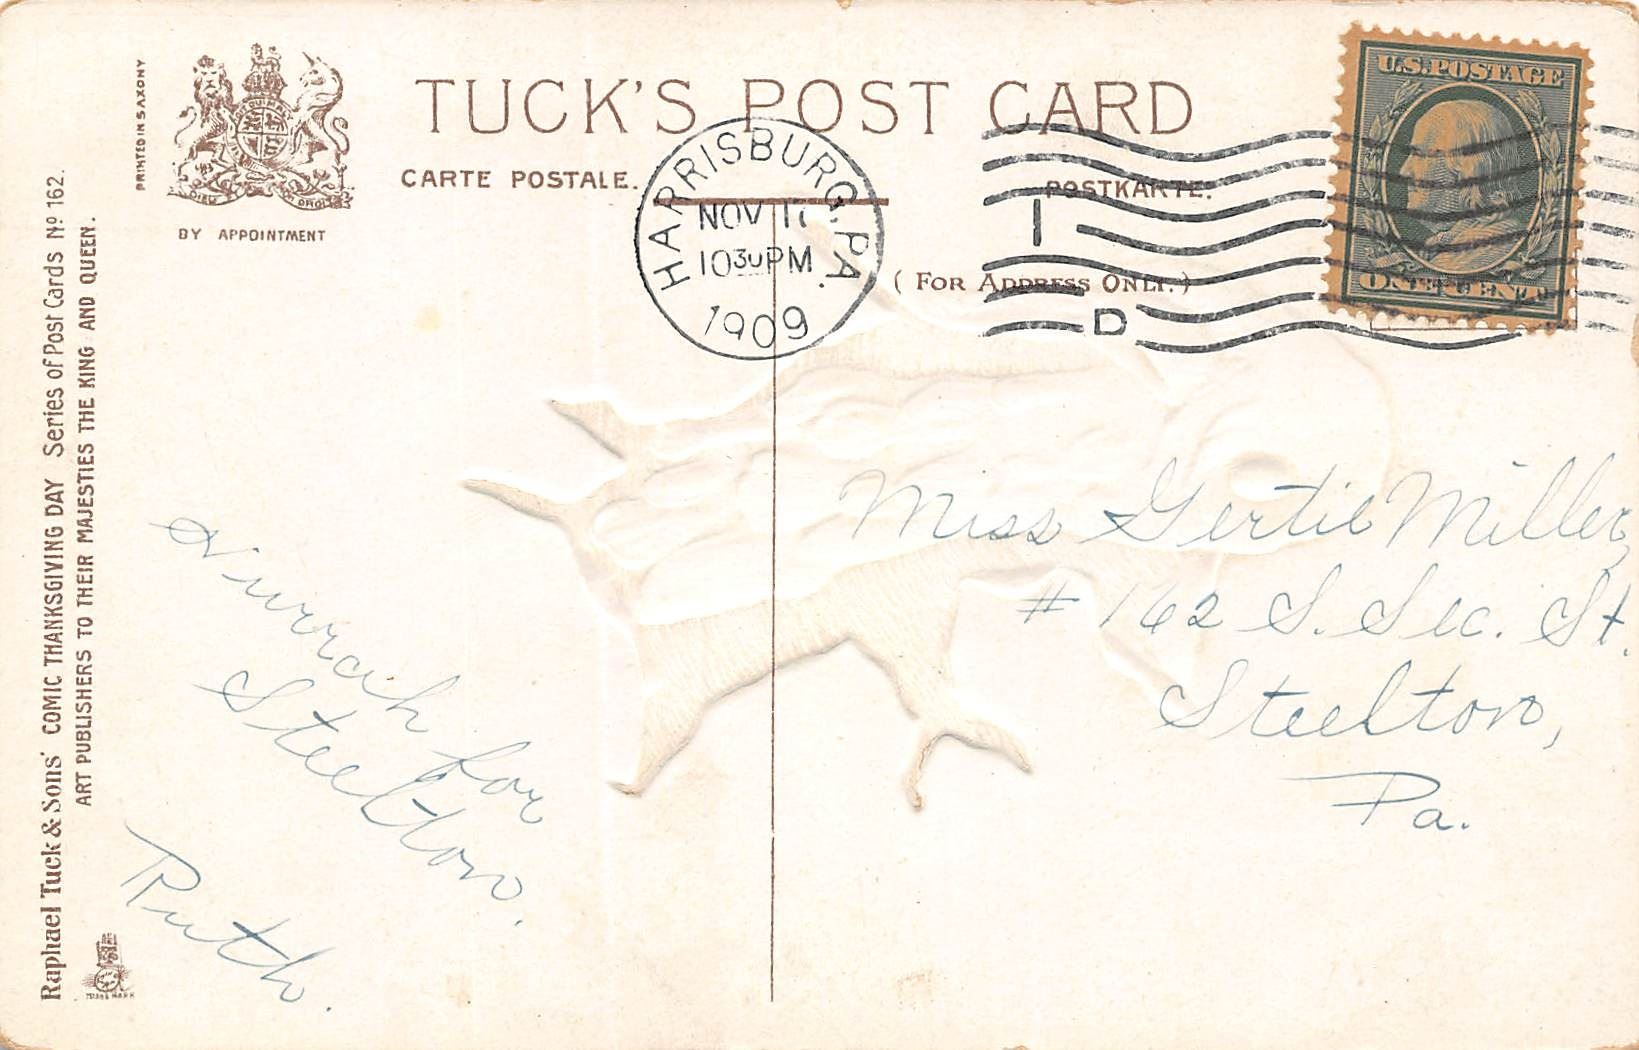 TUCK'S POST CARD
CARTE POSTALE.
POSTKARTE.
( FOR ADDRESS ONLY. )
PRINTED IN SAXONY
BY APPOINTMENT
Raphael Tuck & Sons' COMIC THANKSGIVING DAY Series of Post Cards Nº 162.
ART PUBLISHERS TO THEIR MAJESTIES THE KING AND QUEEN.
TRADE MARK
HARRISBURG, PA.
NOV 17
1030 PM
1909
I
D
U.S. POSTAGE
ONE CENT
Hurrah for
Steelton.
Ruth.
Miss Gertie Miller,
# 162 S. Sec. St.
Steelton,
Pa.